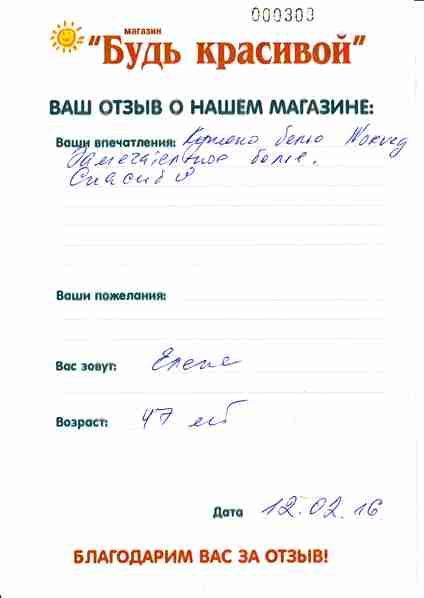 000303
магазин
"Будь красивой"
ВАШ ОТЗЫВ О НАШЕМ МАГАЗИНЕ:
Ваши впечатления: Куплено белье Norveg
Замечательное белье.
Спасибо
Ваши пожелания:
Вас зовут: Елена
Возраст: 47 лет
Дата 12.02.16
БЛАГОДАРИМ ВАС ЗА ОТЗЫВ!